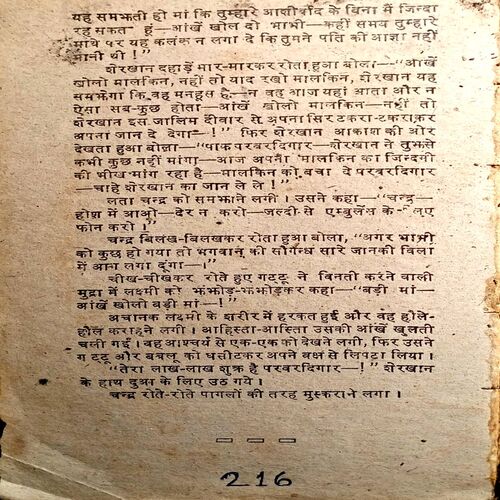 यह समझती हो मां कि तुम्हारे आशीर्वाद के बिना मैं जिन्दा
रह सकता हूं—आंखें खोल दो भाभी—कहीं समय तुम्हारे
माथे पर यह कलंक न लगा दे कि तुमने पति की आज्ञा नहीं
मानी थी !”
शेरखान दहाड़ें मार-मारकर रोता हुआ बोला—“आंखें
खोलो मालकिन, नहीं तो याद रखो मालकिन, शेरखान यह
समझेगा कि वह मनहूस है—न वह आज यहां आता और न
ऐसा सब-कुछ होता—आंखें खोलो मालकिन—नहीं तो
शेरखान इस जालिम दीवार से अपना सिर टकरा-टकराकर
अपना जान दे देगा—!” फिर शेरखान आकाश की ओर
देखता हुआ बोला—“पाक परवरदिगार—शेरखान ने तुझसे
कभी कुछ नहीं मांगा—आज अपनी मालकिन का जिन्दगी
की भीख मांग रहा है—मालकिन को बचा दे परवरदिगार
—चाहे शेरखान का जान ले ले !”
लता चन्द्र को समझाने लगी । उसने कहा—“चन्द्र—
होश में आओ—देर न करो—जल्दी से एम्बुलेंस के लिए
फोन करो ।”
चन्द्र बिलख-बिलखकर रोता हुआ बोला, “अगर भाभी
को कुछ हो गया तो भगवान् की सौगन्ध सारे जानकी विला
में आग लगा दूंगा—।”
चीख-चीखकर रोते हुए गट्टू ने विनती करने वाली
मुद्रा में लक्ष्मी को झंझोड़-झंझोड़कर कहा—“बड़ी मां—
आंखें खोलो बड़ी मां—!”
अचानक लक्ष्मी के शरीर में हरकत हुई और वह हौले-
हौले कराहने लगी । आहिस्ता-आस्तिा उसकी आंखें खुलती
चली गईं । वह आश्चर्य से एक-एक को देखने लगी, फिर उसने
गट्टू और बबलू को घसीटकर अपने वक्ष से लिपटा लिया ।
“तेरा लाख-लाख शुक्र है परवरदिगार—!” शेरखान
के हाथ दुआ के लिए उठ गये ।
चन्द्र रोते-रोते पागलों की तरह मुस्कराने लगा ।
216